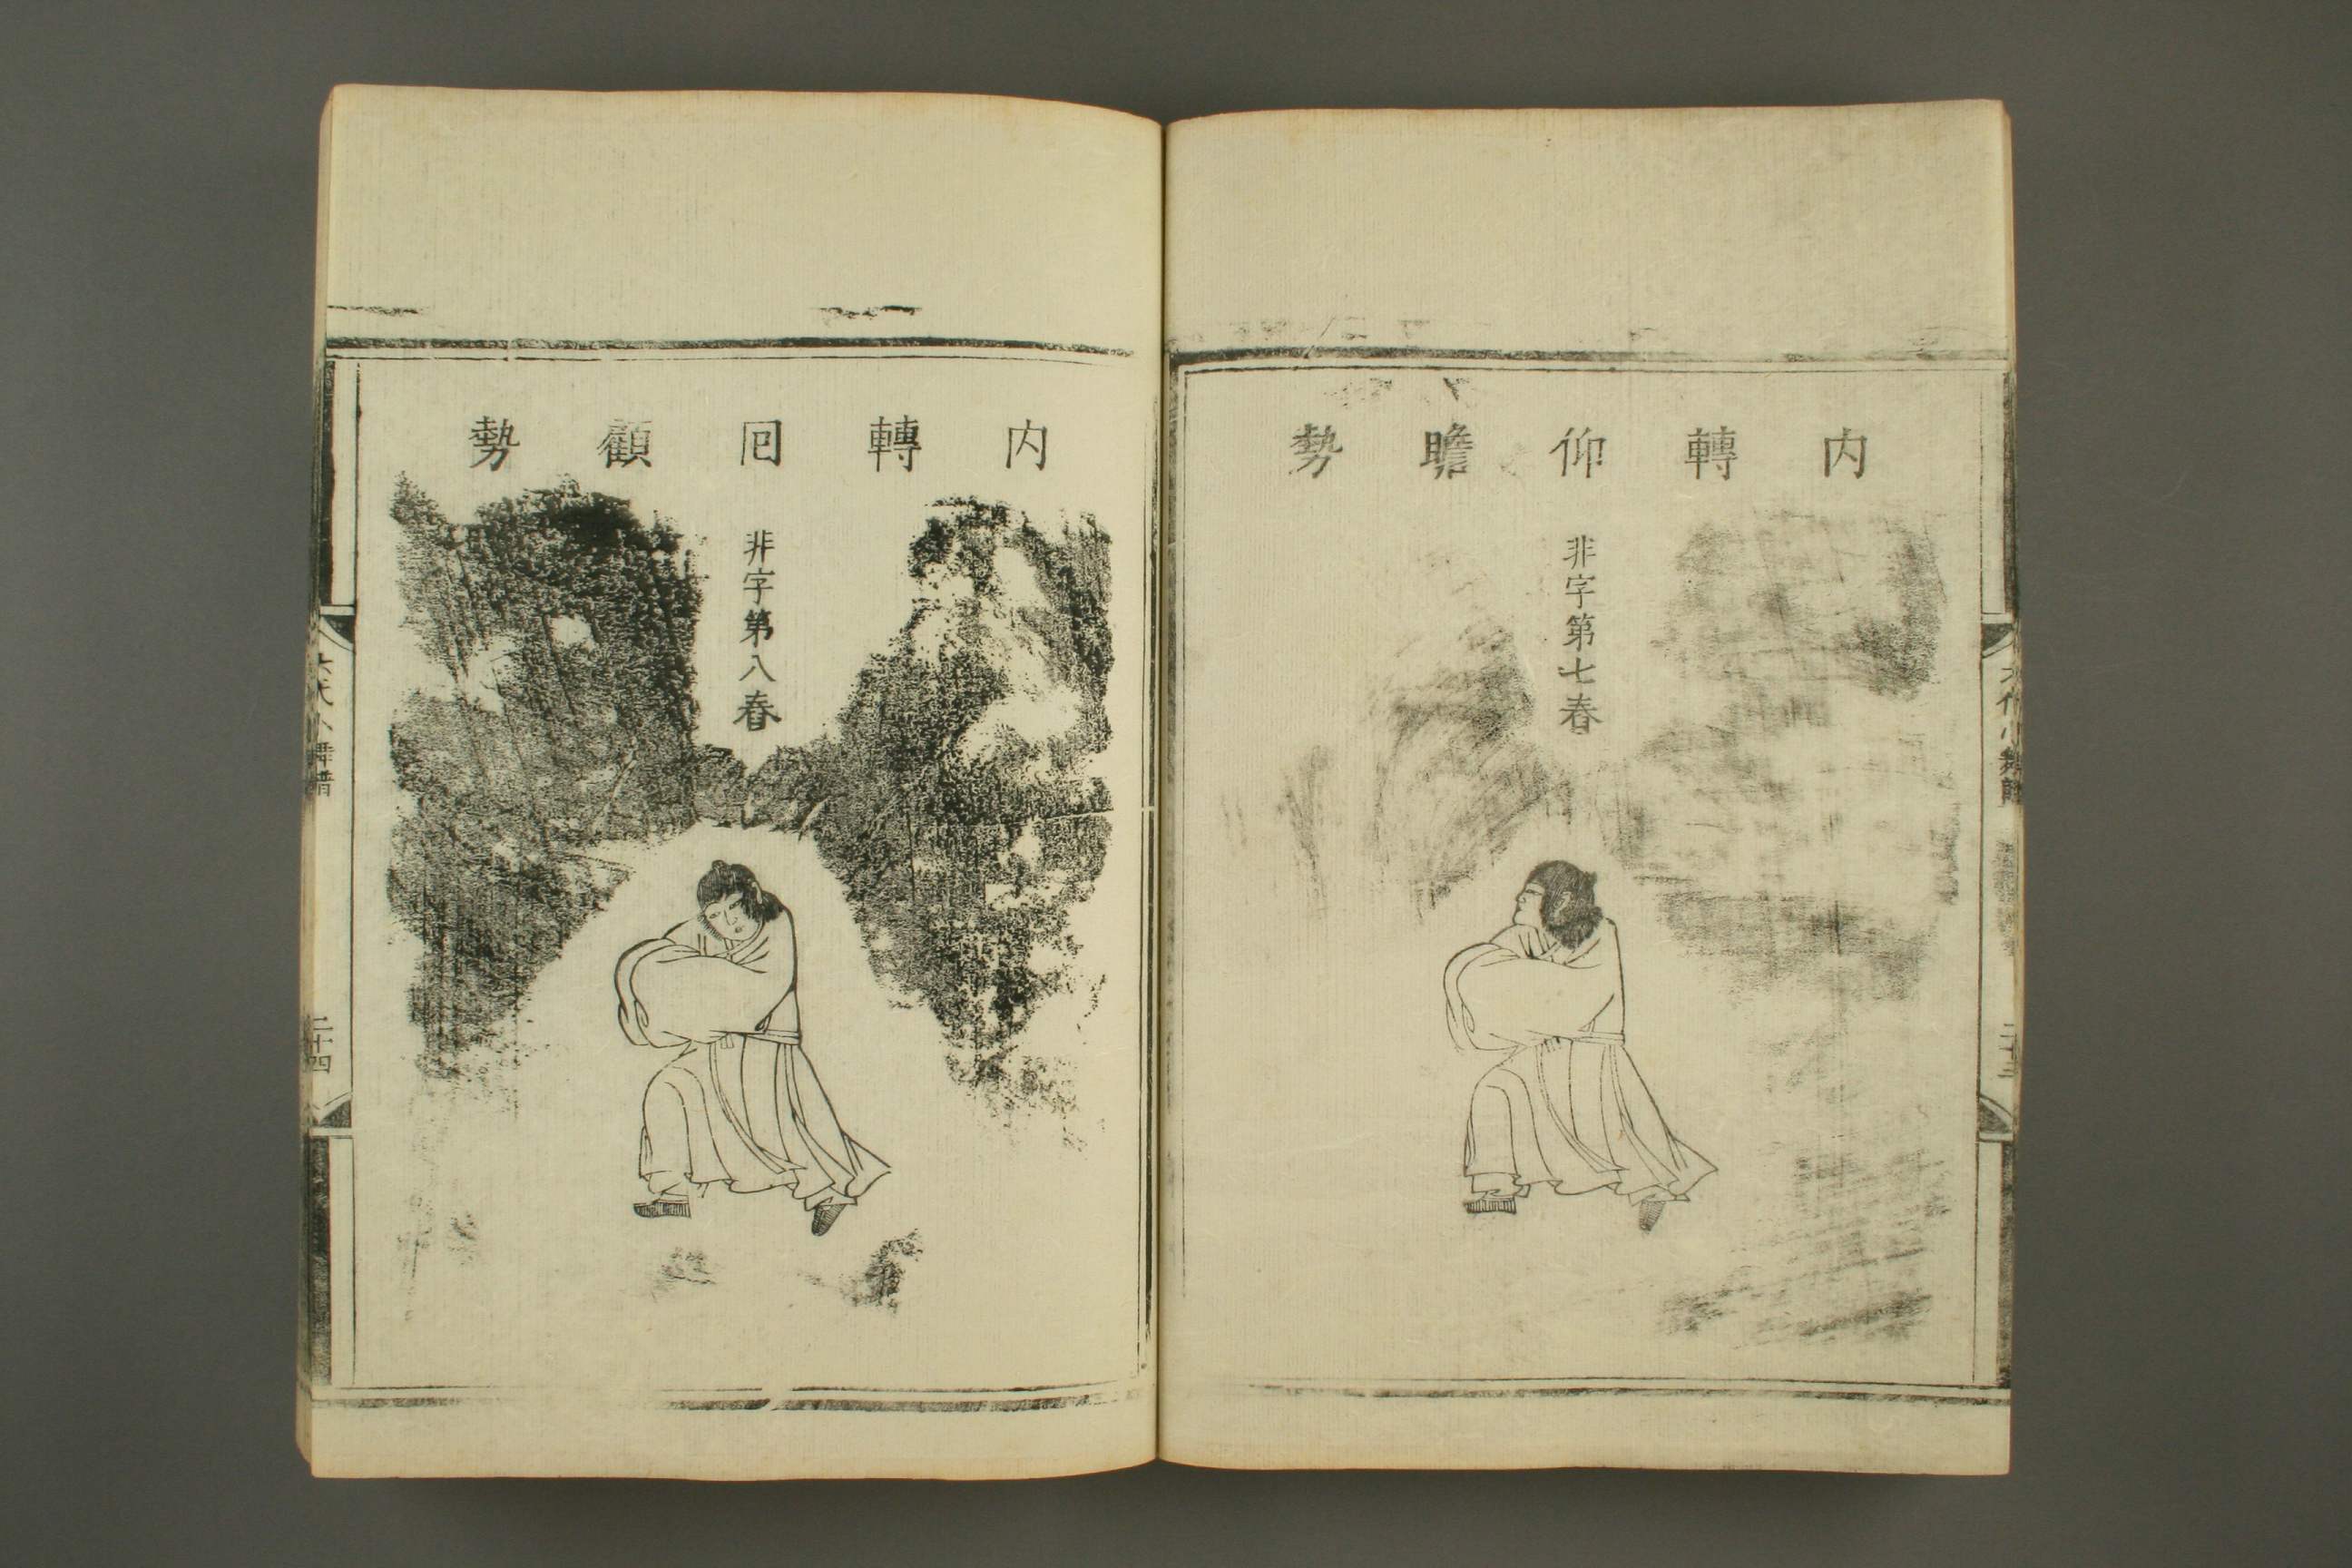 内轉仰瞻勢
非字第七舂
六代小舞譜
二十三
内轉囘顧勢
非字第八舂
六代小舞譜
二十四